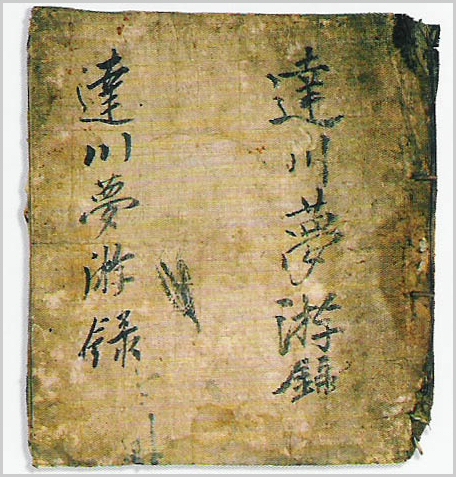 達川夢游錄
達川夢游錄